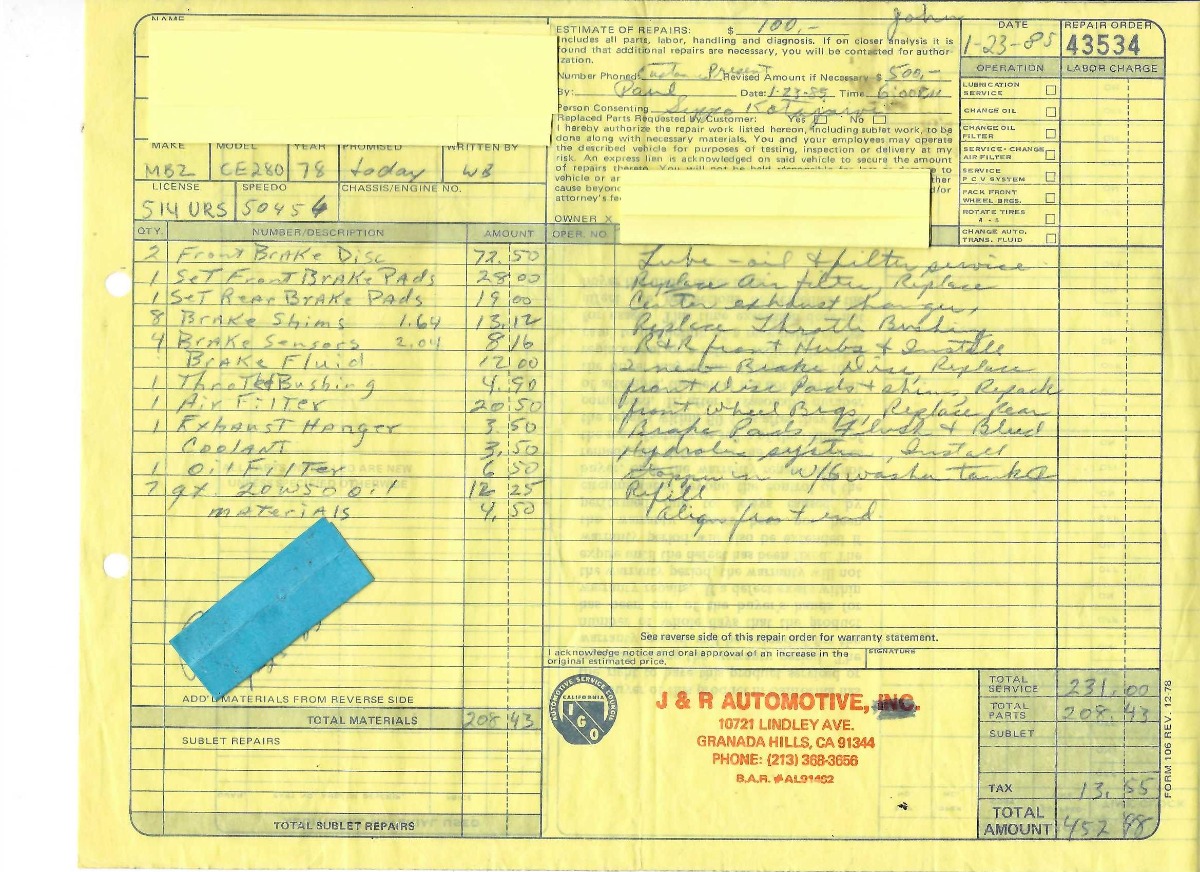 NAME
ESTIMATE OF REPAIRS: $ 100,- John
Includes all parts, labor, handling and diagnosis. If on closer analysis it is
found that additional repairs are necessary, you will be contacted for author-
ization.
Number Phoned: Customer Present Revised Amount if Necessary $ 500,-
By: Paul Date: 1-23-85 Time 6:00PM
Person Consenting
Replaced Parts Requested by Customer: Yes No
I hereby authorize the repair work listed hereon, including sublet work, to be
done along with necessary materials. You and your employees may operate
the described vehicle for purposes of testing, inspection or delivery at my
risk. An express lien is acknowledged on said vehicle to secure the amount
of repairs thereto. You will not be held responsible for loss or damage to
vehicle or
cause beyond and/or
attorney's
OWNER X
DATE
1-23-85
REPAIR ORDER
43534
OPERATION LABOR CHARGE
LUBRICATION
SERVICE
CHANGE OIL
CHANGE OIL
FILTER
SERVICE - CHANGE
AIR FILTER
SERVICE
P C V SYSTEM
PACK FRONT
WHEEL BRGS.
ROTATE TIRES
CHANGE AUTO.
TRANS. FLUID
MAKE MODEL YEAR PROMISED WRITTEN BY
MBZ CE280 78 today WB
LICENSE SPEEDO CHASSIS/ENGINE NO.
514 URS 50456
QTY. NUMBER/DESCRIPTION AMOUNT OPER. NO.
2 Front Brake Disc 72.50
1 Set Front Brake Pads 28 00
1 Set Rear Brake Pads 19 00
8 Brake Shims 1.64 13.12
4 Brake Sensors 2.04 8 16
Brake Fluid 12 00
1 Throttle Bushing 4.90
1 Air Filter 20.50
1 Exhaust Hanger 3.50
Coolant 3.50
1 Oil Filter 6 50
7 qt. 20W50 oil 12 25
materials 4.50
Lube - oil & filter service
Replace Air filter, Replace
Center exhaust hanger,
Replace Throttle Bushing
R&R front Hubs & Install
2 new Brake Disc, Replace
front Disc Pads & shim, Repack
front Wheel Brgs, Replace Rear
Brake Pads, Flush & Bleed
Hydrolic system, Install
W/S washer tank &
Refill
Align front end.
See reverse side of this repair order for warranty statement.
I acknowledge notice and oral approval of an increase in the
original estimated price.
SIGNATURE
ADD'L MATERIALS FROM REVERSE SIDE
TOTAL MATERIALS 208.43
SUBLET REPAIRS
TOTAL SUBLET REPAIRS
AUTOMOTIVE SERVICE COUNCIL
CALIFORNIA
I
G
O
J & R AUTOMOTIVE, INC.
10721 LINDLEY AVE.
GRANADA HILLS, CA 91344
PHONE: (213) 368-3656
B.A.R. #AL91462
TOTAL
SERVICE 231.00
TOTAL
PARTS 208.43
SUBLET
TAX 13.55
TOTAL
AMOUNT 452 98
FORM 106 REV. 12-78